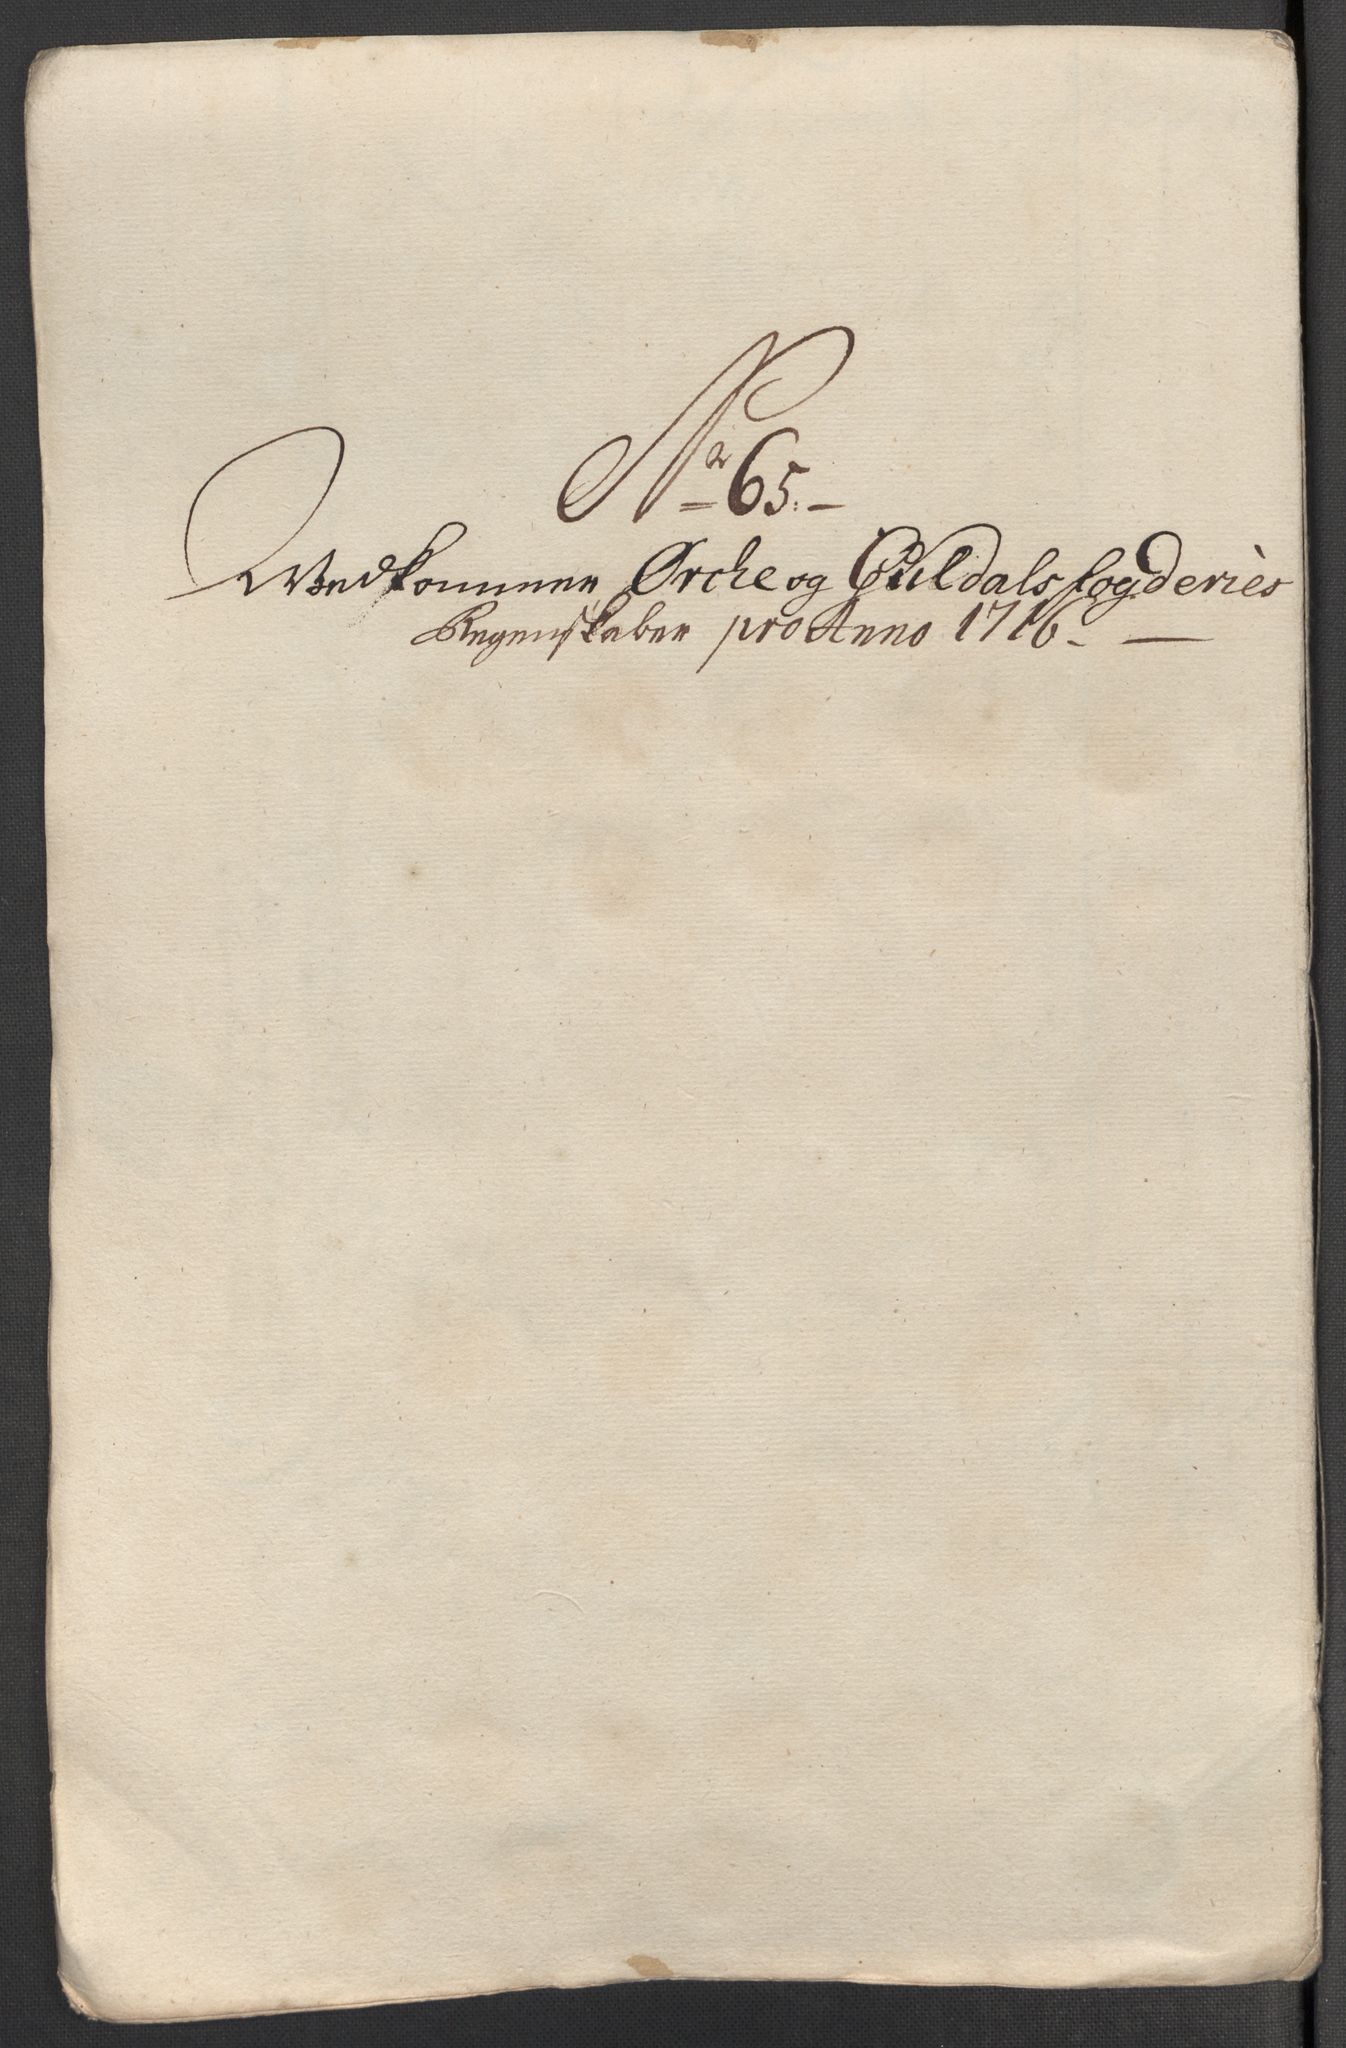 No 65.
Vedkommer Orche og Guldals fogderies
Regenskaber pro Anno 1716